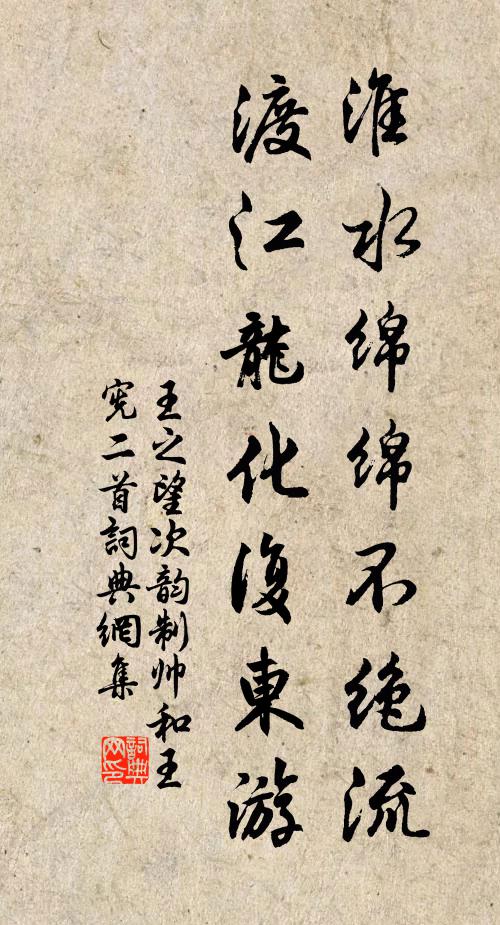 淮水綿綿不絶流
渡江龍化復東游
王之望次韵制帅和王
宪二首詞典網集
詞典
网印